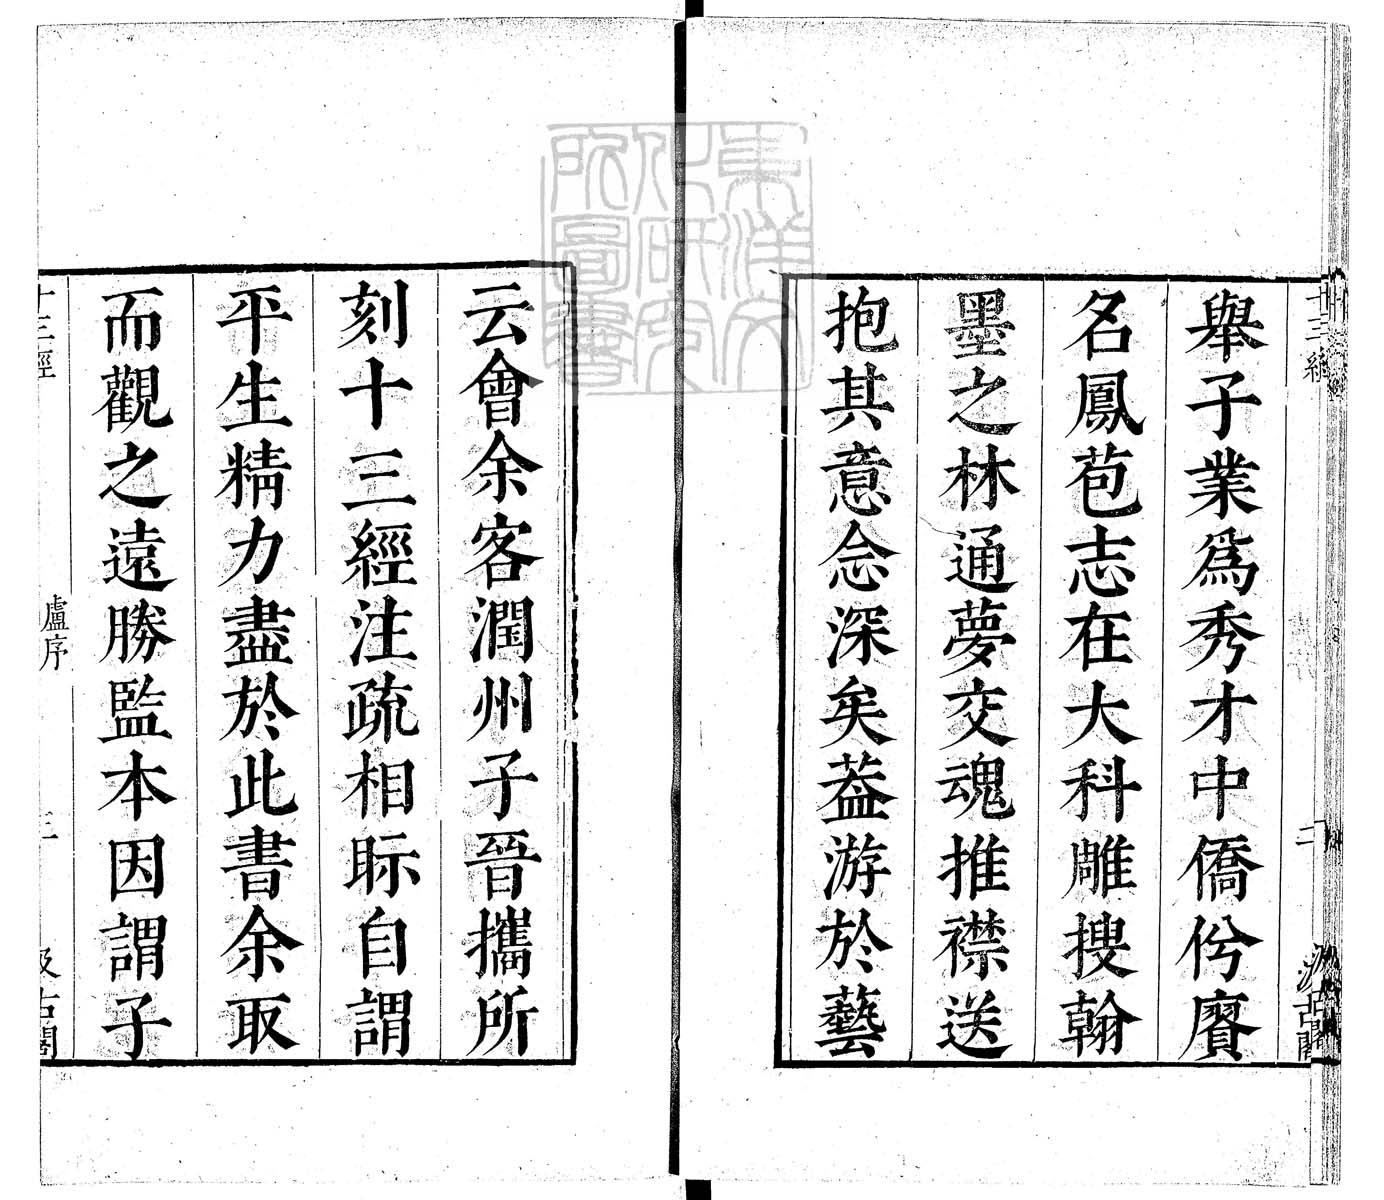 舉子業爲秀才中僑肹賡
名鳳苞志在大科雕搜翰
墨之林通夢交魂推襟送
抱其意念深矣葢游於藝
云會余客潤州子晉攜所
刻十三經注疏相眎自謂
平生精力盡於此書余取
而觀之遠勝監本因謂子
十三經
盧序
三
汲古閣
東洋文
化研究
所圖書